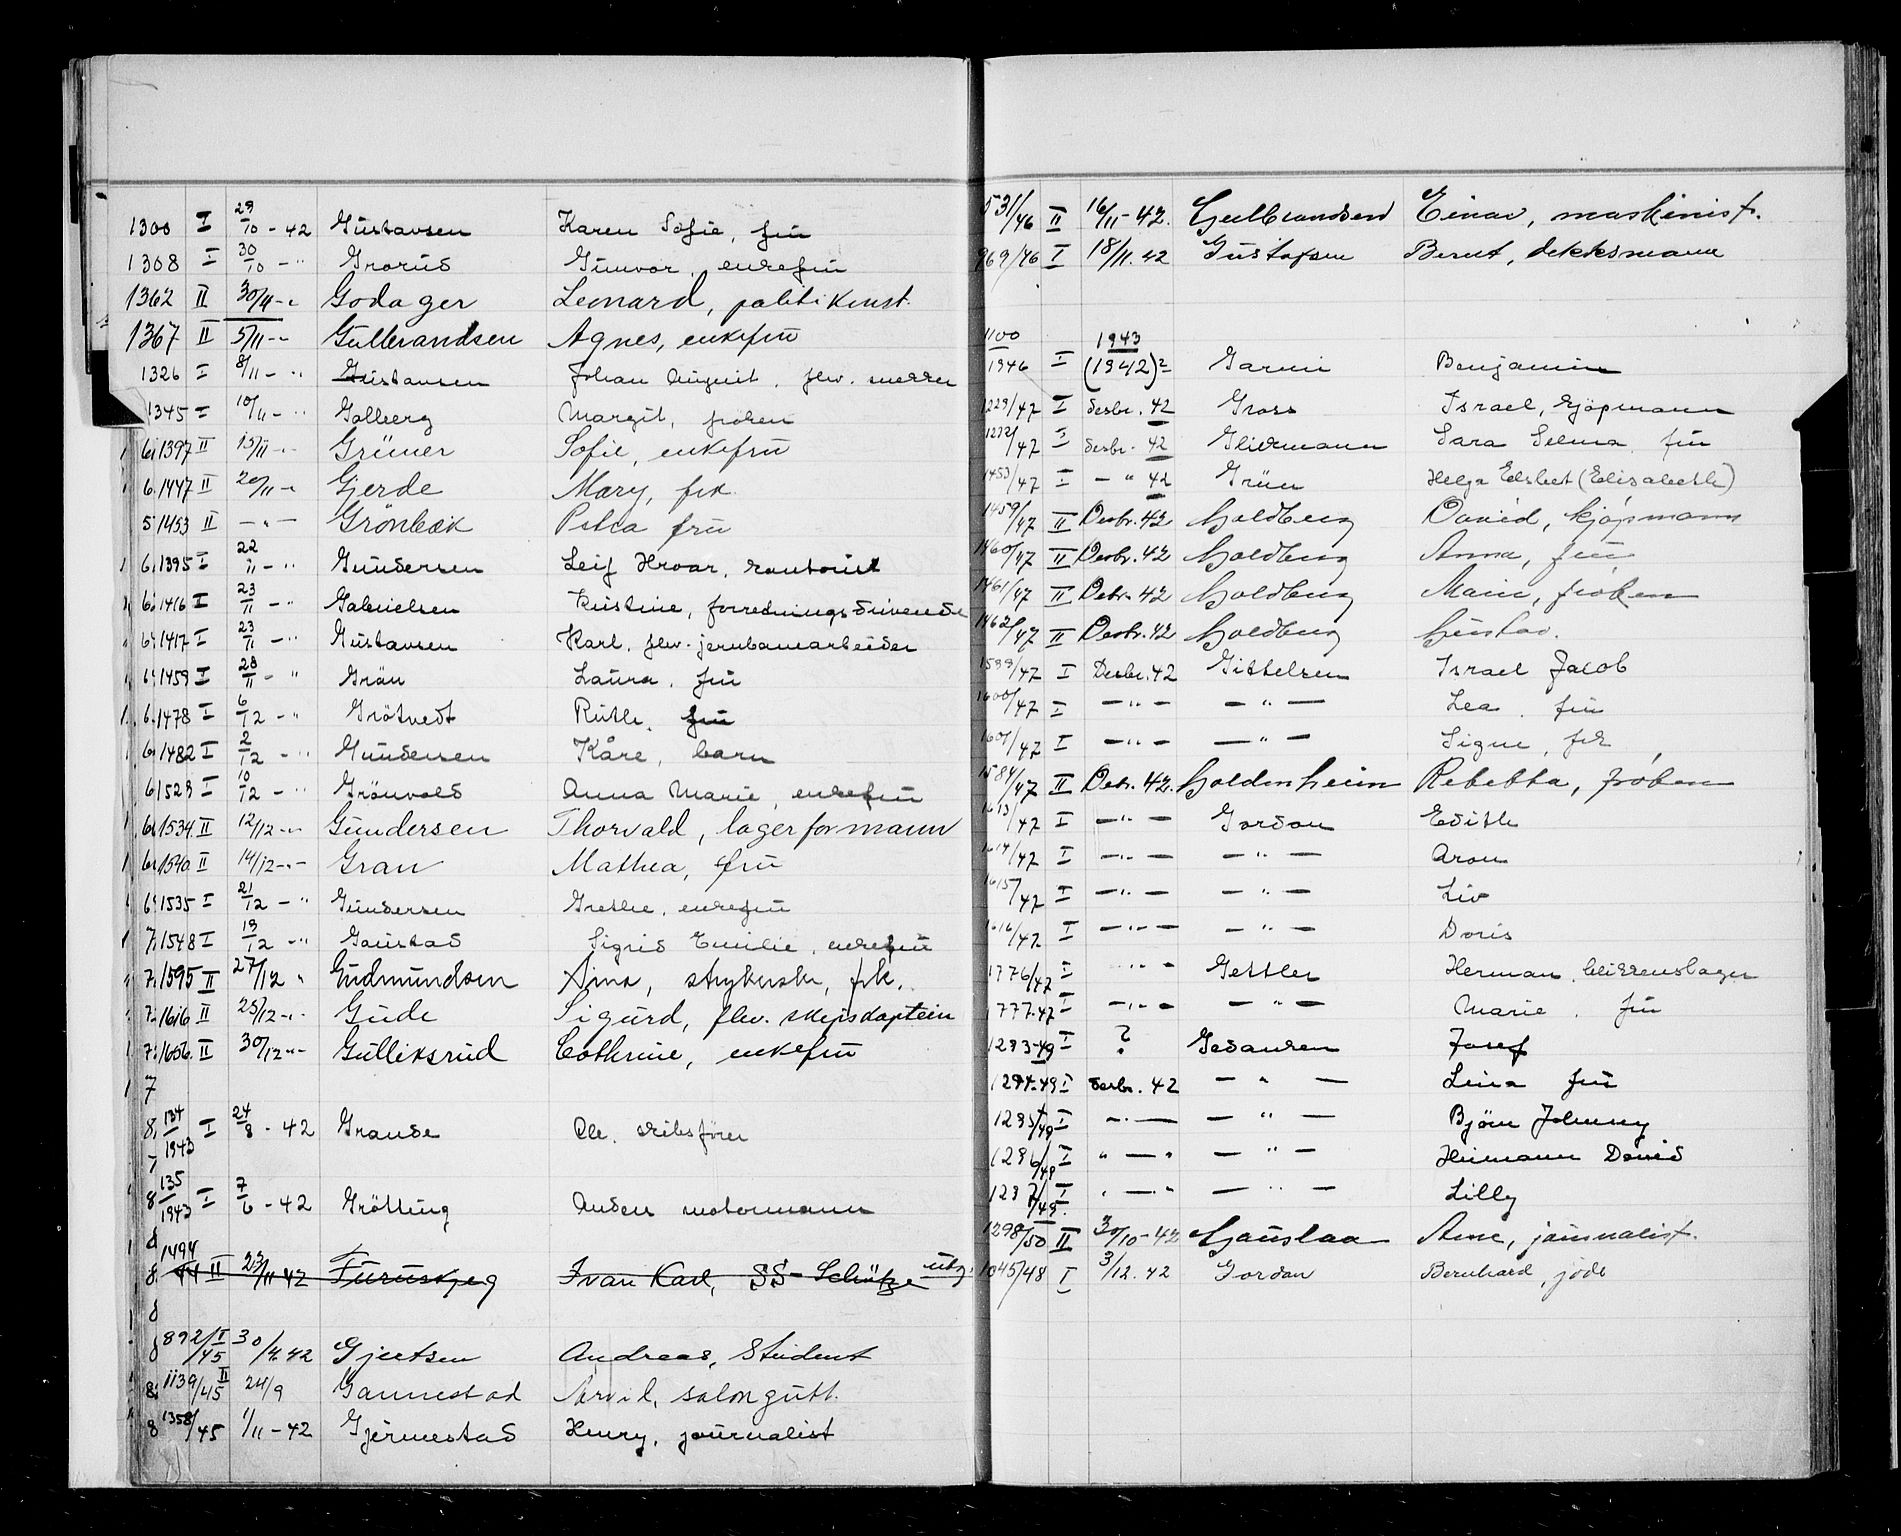 1300 I 29/10 - 42 Gustavsen Karen Sofie, fru
1308 I 30/10 - " Grorud Gunvor, enkefru
1362 II 30/11 - " Godager Leonard, politikonst.
1367 II 5/11 - " Gulbrandsen Agnes, enkefru
1326 I 8/11 - " Gustavsen Johan August, flw.
1345 I 10/11 - " Golberg Margit, frøken
1397 II 15/11 - " Grüner Sofie, enkefru
1447 II 20/11 - " Gjerde Mary, frk.
1453 II - " - Grönbæk Petra fru
1395 I 22/11 - " Gundersen Leif Hroar, kontorist
1416 I 23/11 - " Gabrielsen Kristine, forretningsdrivende
1417 I 23/11 - " Gustavsen Karl, flw. jernbanearbeider
1459 I 28/11 - " Grön Laura, fru
1478 I 6/12 - " Grötvedt Ruth, fru
1482 I 2/12 - " Gundersen Kåre, barn
1529 I 10/12 - " Grönvold Anna Marie, enkefru
1534 II 12/12 - " Gundersen Thorvald, lagerformann
1540 II 14/12 - " Gran Mathea, fru
1535 I 21/12 - " Gundersen Grethe, enkefru
1548 I 19/12 - " Gaustad Sigrid Emilie, enkefru
1595 II 27/12 " Gudmundsen Aina, strykerske, frk.
1616 II 25/12 - " Gude Sigurd, flw. skipskaptein
1656 II 30/12 - " Gulliksrud Cathrine, enkefru
134/1943 I 24/8 - 42 Grande Ole, skibsfører
135/1943 I 7/6 - 42 Grötting Anders motormann
1494/44 II 23/11 42 Furuskjeg Ivan Karl, SS-Schütze utg.
892/45 I 30/4 42 Gjertsen Andreas, Student
1139/45 II 24/9 Gannestad Arvid, salongutt.
1358/45 1/11 - 42 Gjermestad Henry, journalist
531/46 II 16/11 - 42. Gulbrandsen Einar, maskinist.
969/46 I 18/11. 42 Gustafsen Bernt, dekksmann
1943
1100/1946 I (1942)? Garmi Benjamin
1229/47 I desbr. 42 Gross Israel, kjöpmann
1272/47 I desbr. 42 Glickmann Sara Selma, fru
1453/47 I - " 42 Grün Helga Elsbet (Elisabeth)
1459/47 II Desbr. 42 Goldberg David, kjöpmann
1460/47 II Desbr. 42 Goldberg Anna, fru
1461/47 II Debr. 42 Goldberg Marie, fröken
1462/47 II Desbr. 42 Goldberg Gustav.
1599/47 I Desbr. 42 Gittelsen Israel Jacob
1600/47 I - " - - " - Lea, fru
1601/47 I - " - - " - Signe, frk
1584/47 II Debr. 42. Goldenheim Rebekka, fröken
1613/47 I - " - Gordon Edith
1614/47 I - " - - " - Aron
1615/47 I - " - - " - Liv
1616/47 I - " - - " - Doris
1776/47 I - " - Gettler Herman, blikkenslager
1777.47 I - " - - " - Marie, fru
1293-49 I ? Gedansen Josef
1294-49 I desbr. 42 - " - Lina fru
1295/49 I - " - - " - Björn Johnny
1296/49 I " - " - " - Heimann David
1297/49 I " - " - " - Lilly
1298/50 II 30/10 - 42 Gauslaa Arne, journalist.
1045/48 I 3/12. 42 Gordon Bernhard, jøde